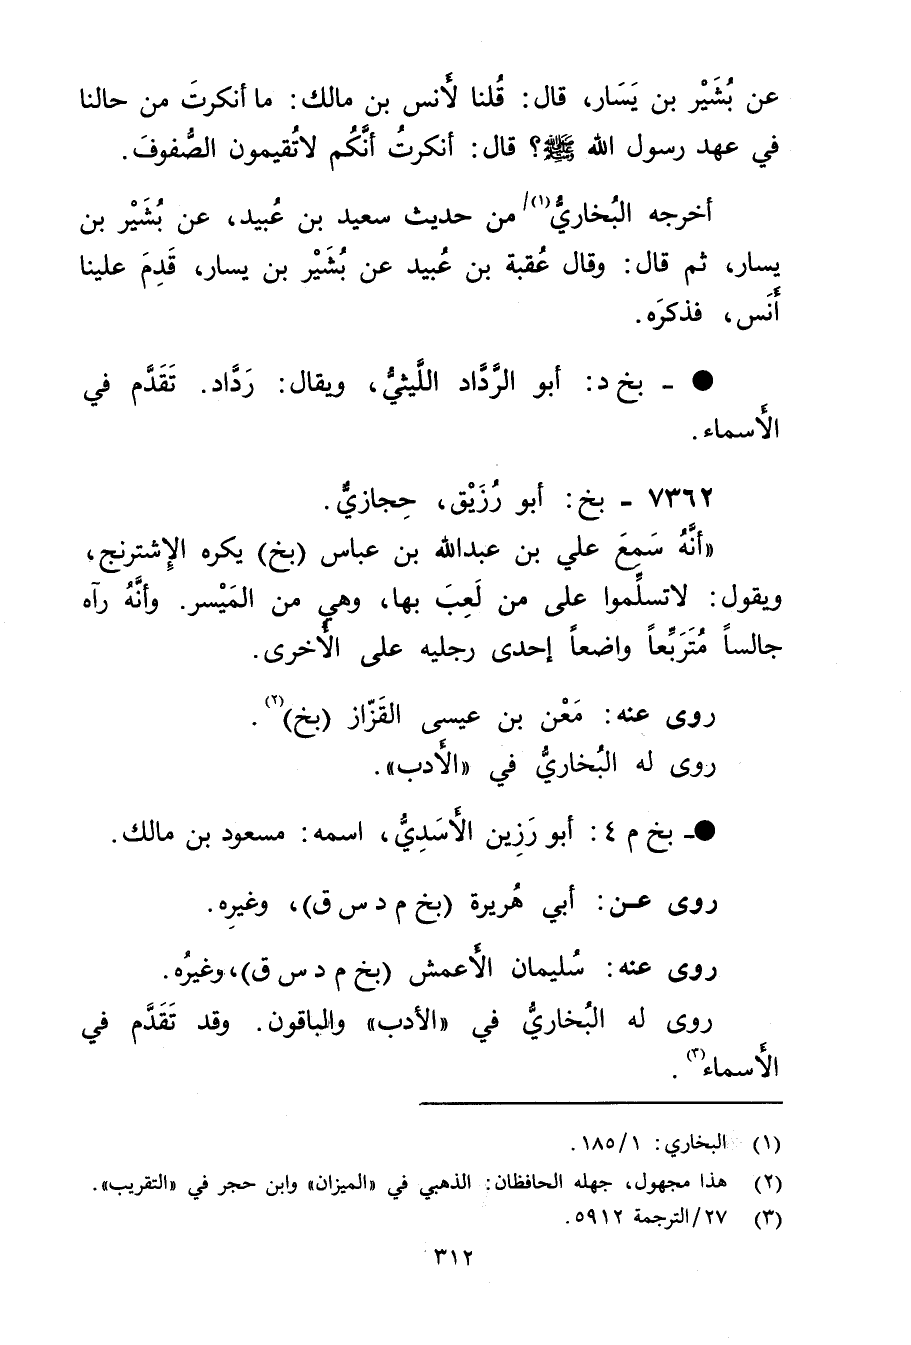 عن بُشَيْر بن يَسَار، قال: قُلنا لأَنس بن مالك: ما أنكرتَ من حالنا
في عهد رسول الله ﷺ؟ قال: أنكرتُ أنَّكُم لاتُقيمون الصُّفوفَ.
أخرجه البُخاريُّ(١)/ من حديث سعيد بن عُبيد، عن بُشَيْر بن
يسار، ثم قال: وقال عُقبة بن عُبيد عن بُشَيْر بن يسار، قَدِمَ علينا
أَنَس، فذكرَه.
● ـ بخ د: أبو الرَّدَّاد اللَّيثيُّ، ويقال: رَدَّاد. تَقَدَّم في
الأَسماء.
٧٣٦٢ ـ بخ: أبو رُزَيْق، حِجازيٌّ.
«أنَّهُ سَمِعَ علي بن عبدالله بن عباس (بخ) يكره الإِشترنج،
ويقول: لاتسلِّموا على من لَعِبَ بها، وهي من المَيْسر. وأنَّهُ رآه
جالساً مُتَرَبِّعاً واضعاً إحدى رجليه على الأُخرى.
روى عنه: مَعْن بن عيسى القَزّاز (بخ)(٢).
روى له البُخاريُّ في «الأَدب».
●ـ بخ م ٤: أبو رَزِين الأَسَدِيُّ، اسمه: مسعود بن مالك.
روى عـن: أبي هُريرة (بخ م د س ق)، وغيرِه.
روى عنه: سُليمان الأَعمش (بخ م د س ق)، وغيرُه.
روى له البُخاريُّ في «الأدب» والباقون. وقد تَقَدَّم في
الأَسماء(٣).
(١) البخاري: ١/ ١٨٥.
(٢) هذا مجهول، جهله الحافظان: الذهبي في «الميزان» وابن حجر في «التقريب».
(٣) ٢٧/الترجمة ٥٩١٢.
٣١٢